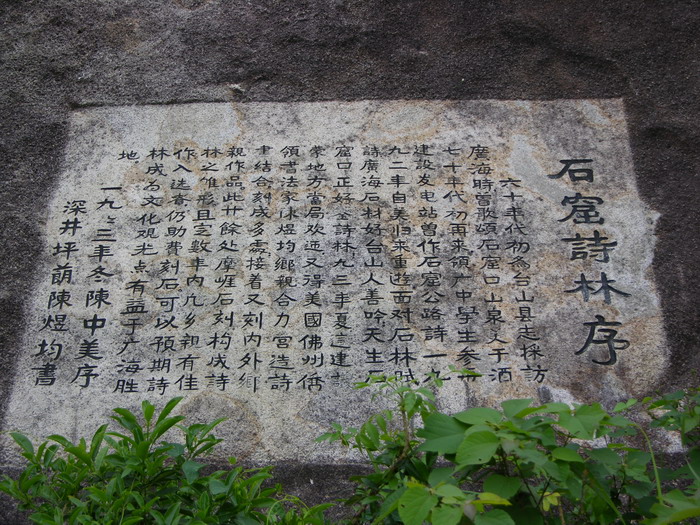 石窟詩林序
六十年代初為台山县志採訪
廣海時曾歌頌石窟口山泉义于洒
七十年代初再来領广中學生参
建設发电站曾作石窟公路詩一九
九二年自美归来重遊面对石林賦
詩廣海石材好台山人善吟天生石
窟口正好全詩林九三年夏言建
蒙地方當局欢迎又得美國佛州侨
領書法家陳煜均鄉親合力营造詩
書結合刻成多處接着又刻内外鄉
親作品此廿餘处摩崖石刻构成詩
林之雏形且定數年内凡乡親有佳
作入选者仍助費刻石可以預期詩
林成为文化观光点有益于广海胜
地
一九九三年冬陳中美序
深井坪荫陳煜均書